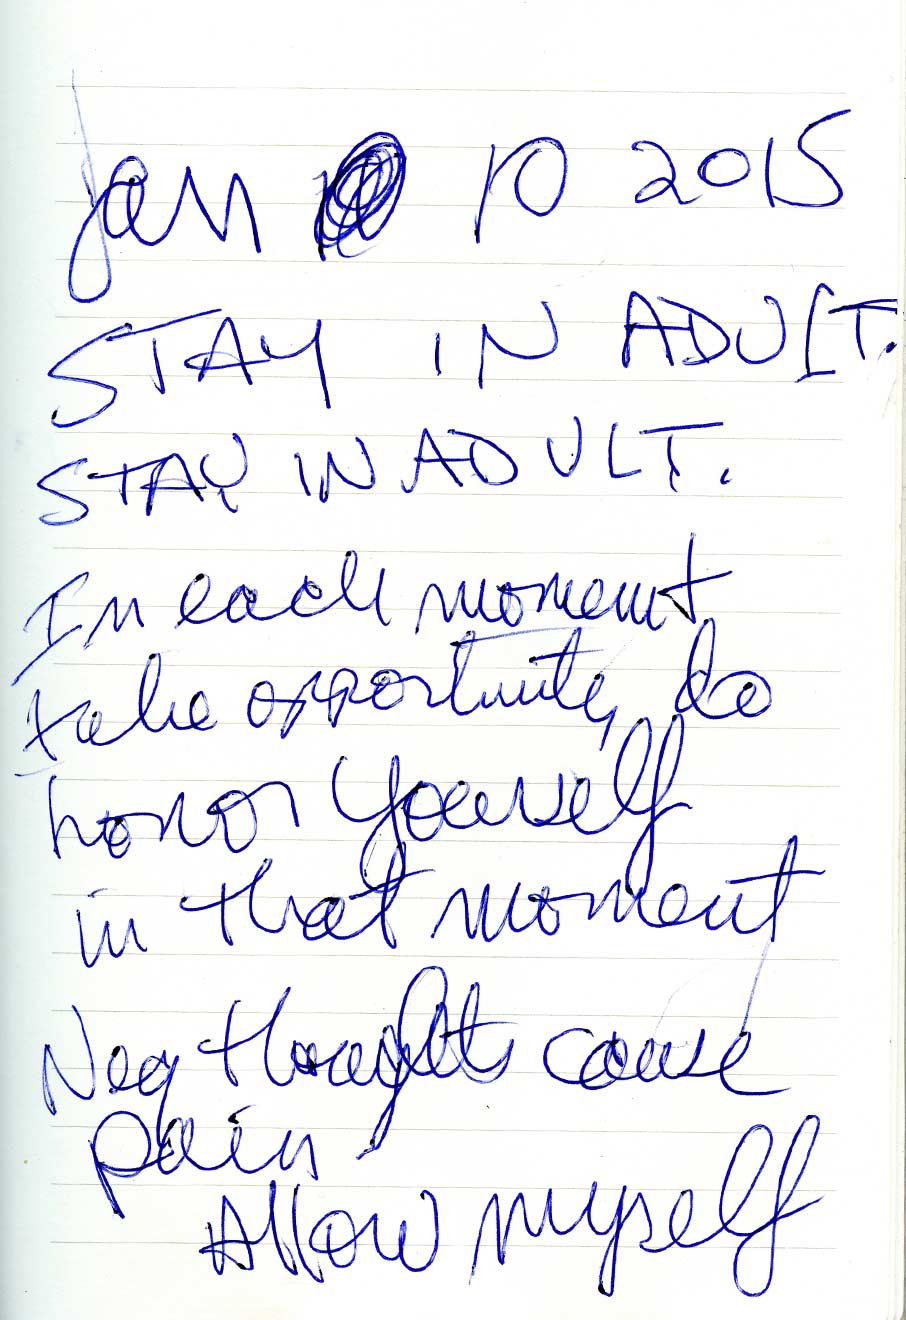 Jan 10 2015
STAY IN ADULT.
STAY IN ADULT.
In each moment
take opportunity do
honor yourself
in that moment
Neg thoughts cause
pain
Allow myself